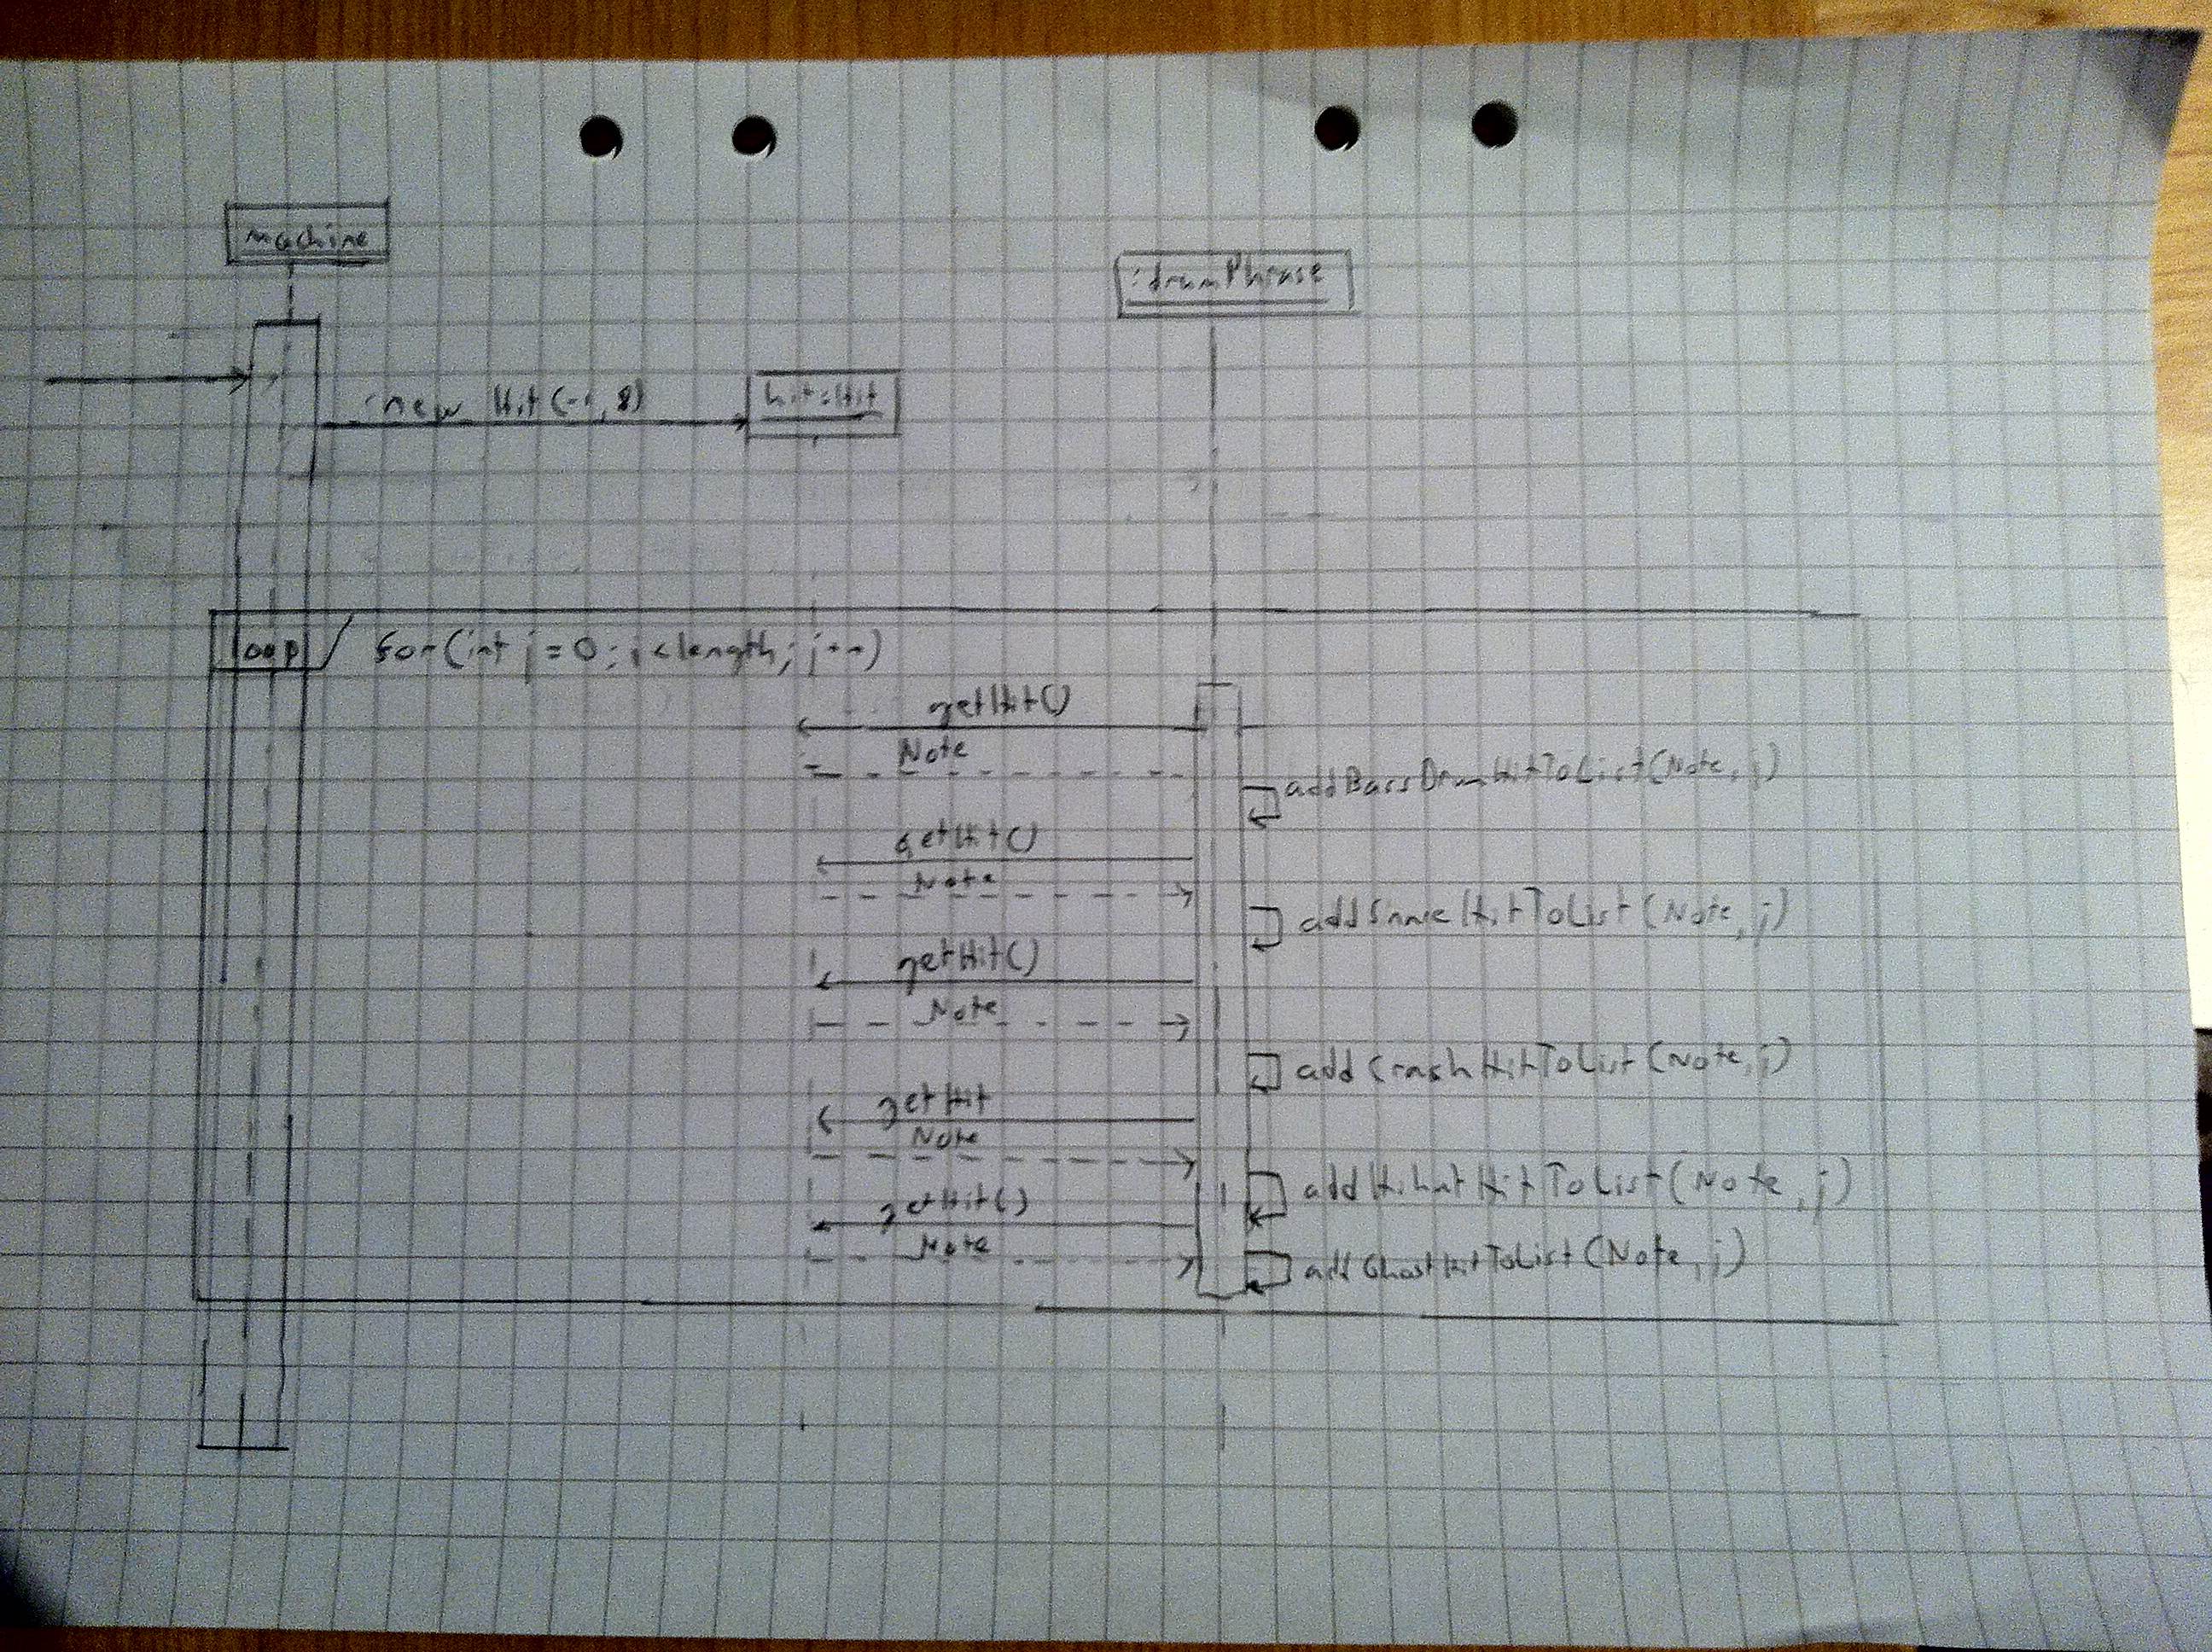 machine
:drumPhrase
:new Hit(-1, 8)
hit:Hit
loop
for(int j=0; j<length; j++)
getHit()
Note
addBassDrumHitToList(Note, j)
getHit()
Note
addSnareHitToList(Note, j)
getHit()
Note
addCrashHitToList(Note, j)
getHit
Note
addHihatHitToList(Note, j)
getHit()
Note
addGhostHitToList(Note, j)